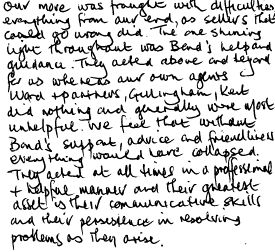 Our move was fraught with difficulties
everything from our end, as sellers that
could go wrong did. The one shining
light throughout was Bond's help and
guidance. They acted above and beyond
for us whereas our own agents
Ward + partners, Gillingham, Kent
did nothing and generally were most
unhelpful. We feel that without
Bond's support, advice and friendliness
everything would have collapsed.
They acted at all times in a professional
+ helpful manner and their greatest
asset is their communicative skills
and their persistence in resolving
problems as they arise.